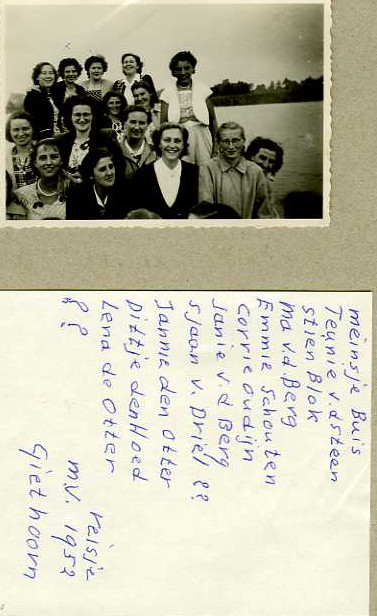 meinsje Buis
Teunie v.d steen
stien Blok
Ma v.d. Berg
Emmie Schouten
Corrie oudijn
Janie v.d Berg
Sjaan v. Driel ??
Jannie den Otter
Ditje den Hoed
Lena de Otter
? ?
reisje
m.v. 1952
Giethoorn